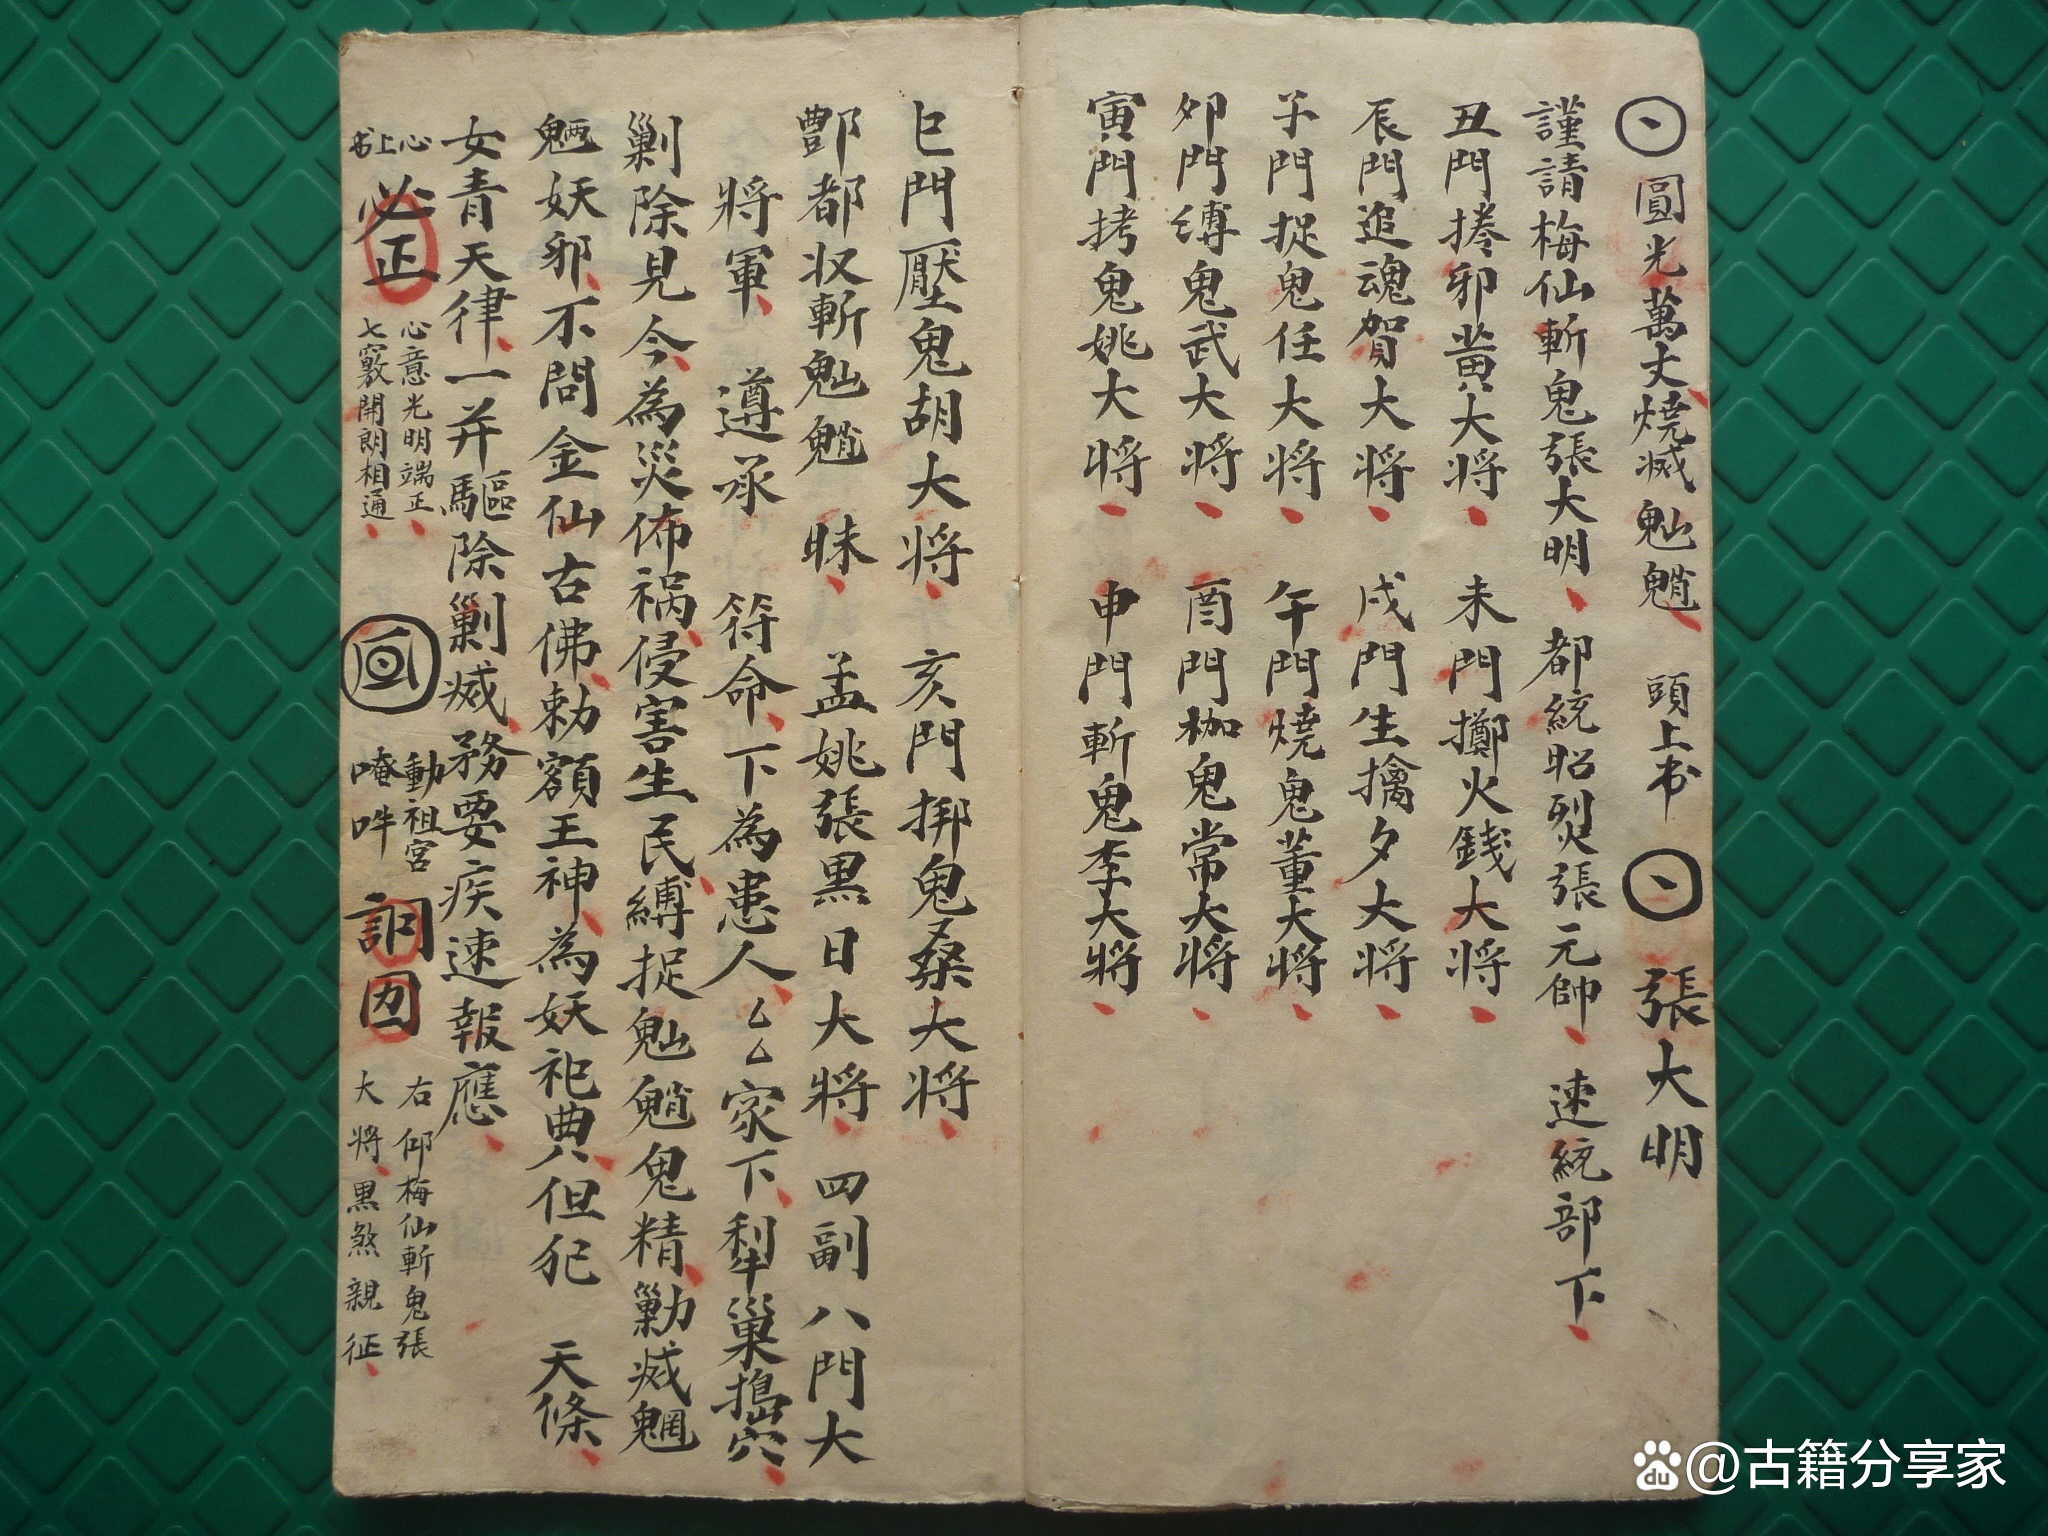 圓光萬丈燒滅魈 頭上书 張大明
謹請梅仙斬鬼張大明、都統昭烈張元帥、速統部下、
丑門捲邪黃大将、未門擲火錢大将、
辰門追魂賀大将、戌門生擒夕大将、
子門捉鬼任大将、午門燒鬼董大将、
夘門缚鬼武大将、酉門枷鬼常大将、
寅門拷鬼姚大将、申門斬鬼李大将、
巳門壓鬼胡大将、亥門掷鬼桑大将、
酆都収斬魈 眜、孟姚張黑日大將、四副八門大
將軍、遵承 符命、下為患人、厶厶家下、犁巢搗穴、
剿除見今、為災佈祸、侵害生民、縛捉魈鬼精、勦滅魍
魉妖邪、不問金仙古佛、勅額王神、為妖祀典、但犯 天條、
女青天律、一并驅除剿滅、務要疾速報應、
心上书 心正 心意光明端正、
七竅開朗相通、
動祖宮
唵吽
右仰梅仙斬鬼張
大將、黑煞親征、
@古籍分享家